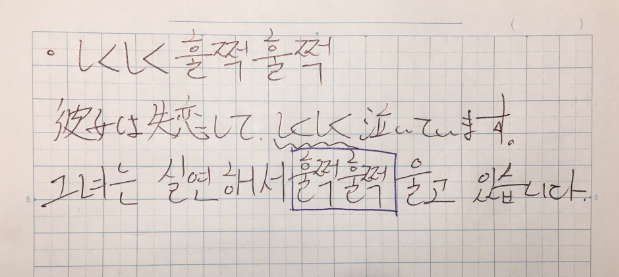 • しくしく 훌쩍훌쩍
彼女は失恋して、しくしく泣いています。
그녀는 실연해서 훌쩍훌쩍 울고 있습니다.